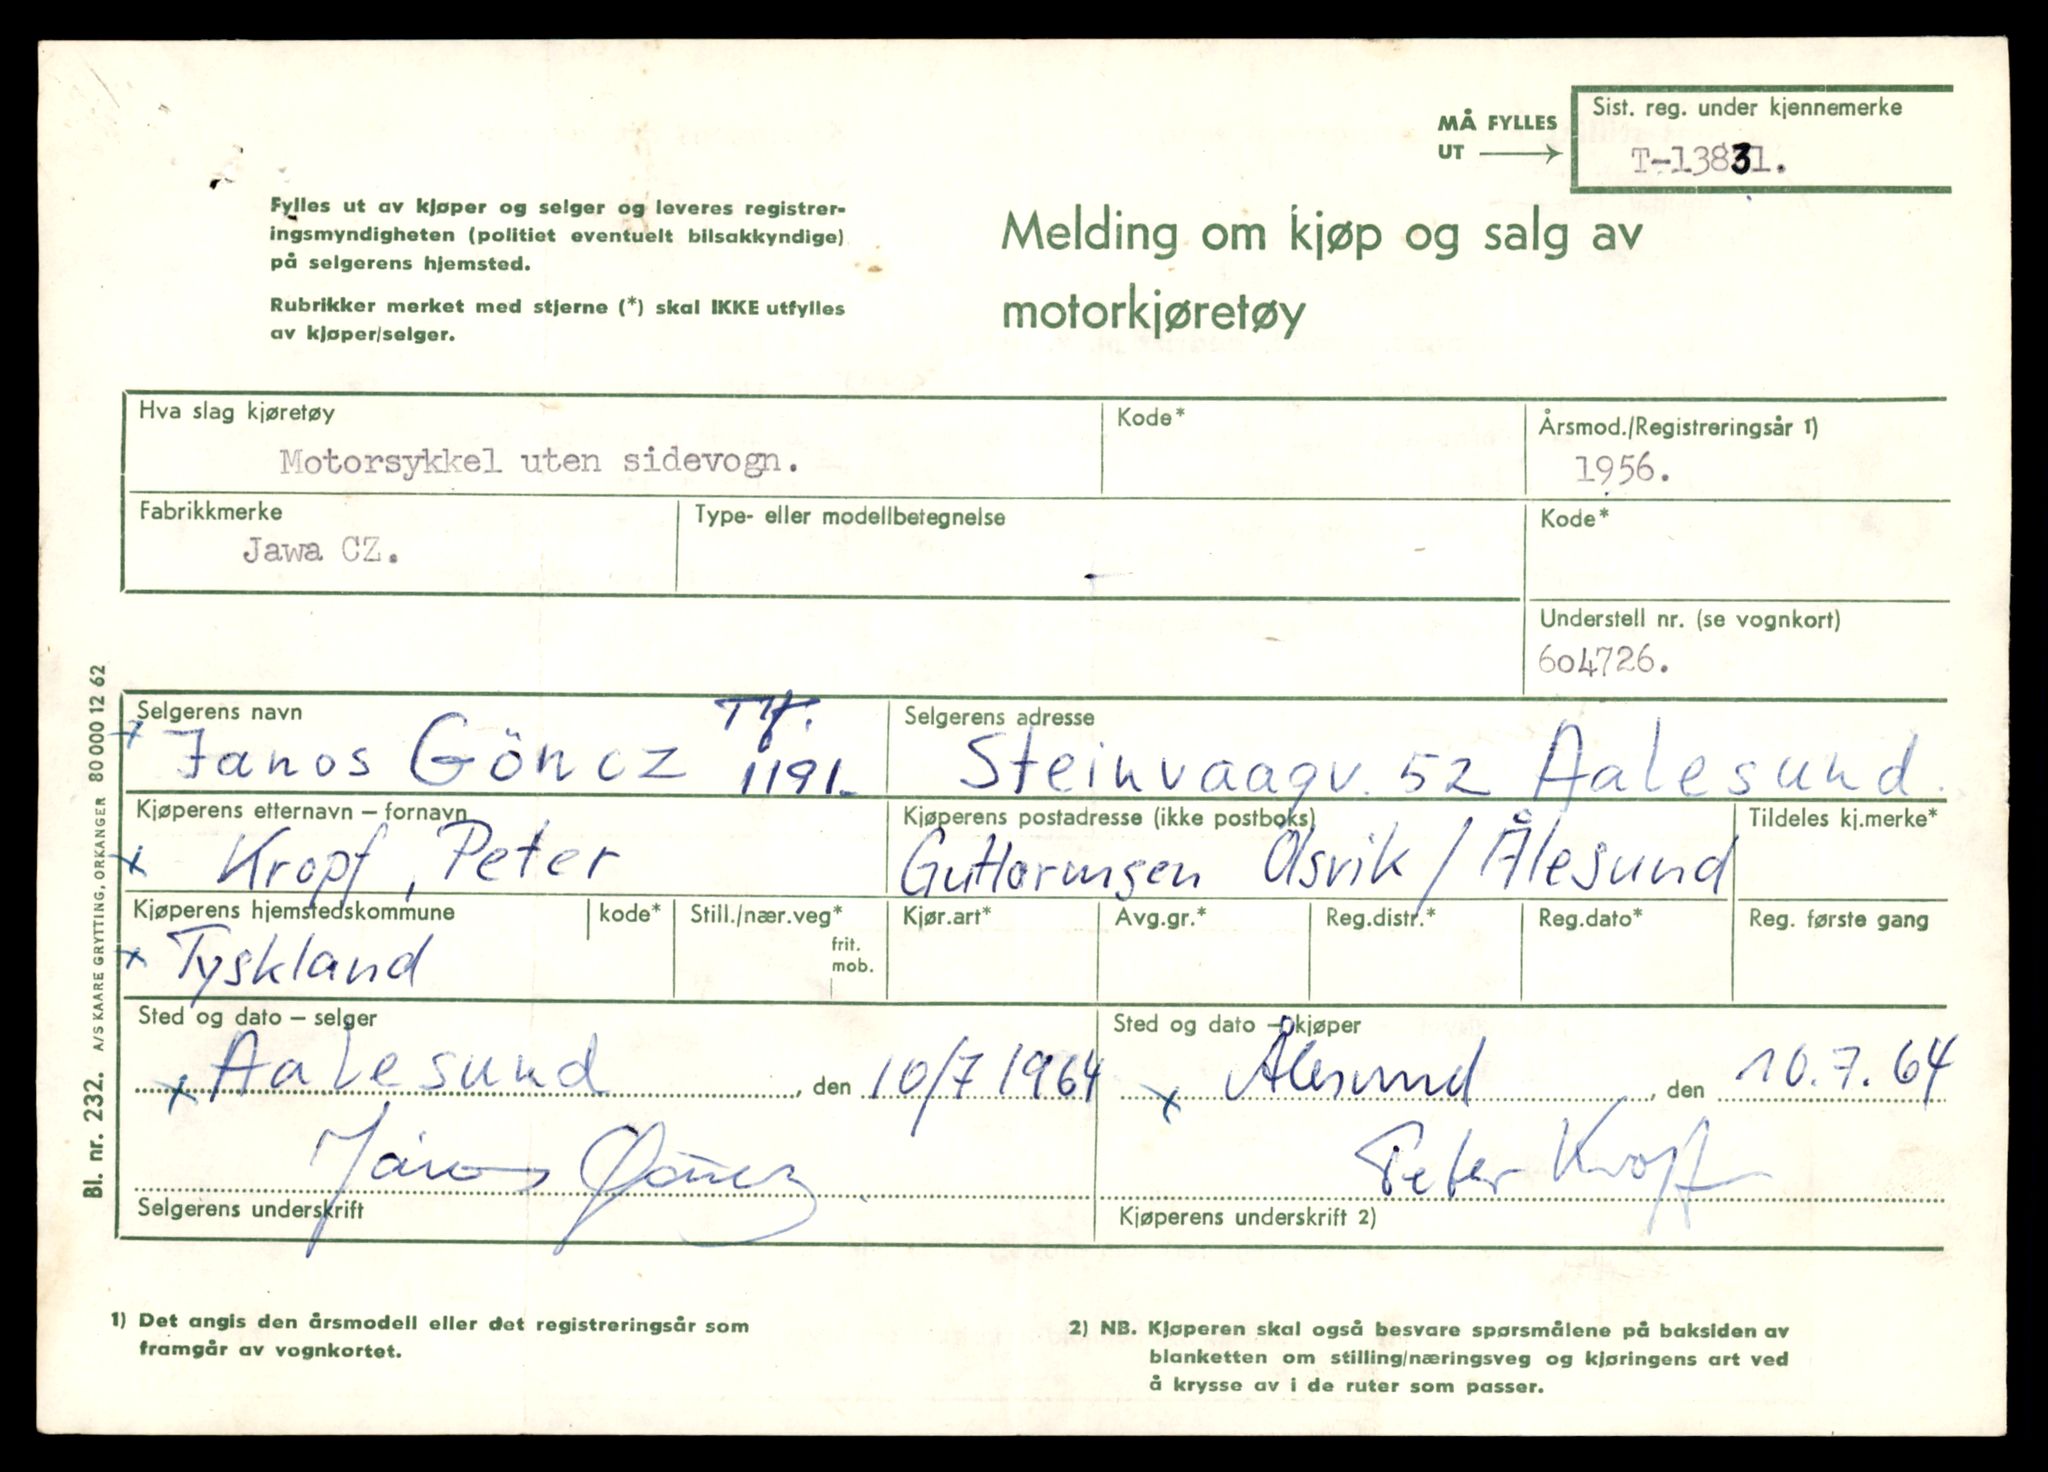 MÅ FYLLES
UT
Sist. reg. under kjennemerke
T-13831.
Fylles ut av kjøper og selger og leveres registrer-
ingsmyndigheten (politiet eventuelt bilsakkyndige)
på selgerens hjemsted.
Rubrikker merket med stjerne (*) skal IKKE utfylles
av kjøper/selger.
Melding om kjøp og salg av
motorkjøretøy
Hva slag kjøretøy
Motorsykkel uten sidevogn.
Kode*
Årsmod./Registreringsår 1)
1956.
Fabrikkmerke
Jawa CZ.
Type- eller modellbetegnelse
Kode*
Understell nr. (se vognkort)
604726.
Selgerens navn
Janos Göncz Tlf. 1191.
Selgerens adresse
Steinvaagv. 52 Aalesund.
Kjøperens etternavn – fornavn
Kropf, Peter
Kjøperens postadresse (ikke postboks)
Åsvik / Ålesund
Tildeles kj.merke*
Kjøperens hjemstedskommune
Tyskland
kode*
Still./nær.veg*
frit.
mob.
Kjør.art*
Avg.gr.*
Reg.distr.*
Reg.dato*
Reg. første gang
Sted og dato – selger
x Aalesund, den 10/7 1964
Sted og dato – kjøper
x Ålesund, den 10.7.64
János Göncz
Selgerens underskrift
Peter Kropf
Kjøperens underskrift 2)
1) Det angis den årsmodell eller det registreringsår som
framgår av vognkortet.
2) NB. Kjøperen skal også besvare spørsmålene på baksiden av
blanketten om stilling/næringsveg og kjøringens art ved
å krysse av i de ruter som passer.
Bl. nr. 232. A/S KAARE GRYTTING, ORKANGER 80 000 12 62